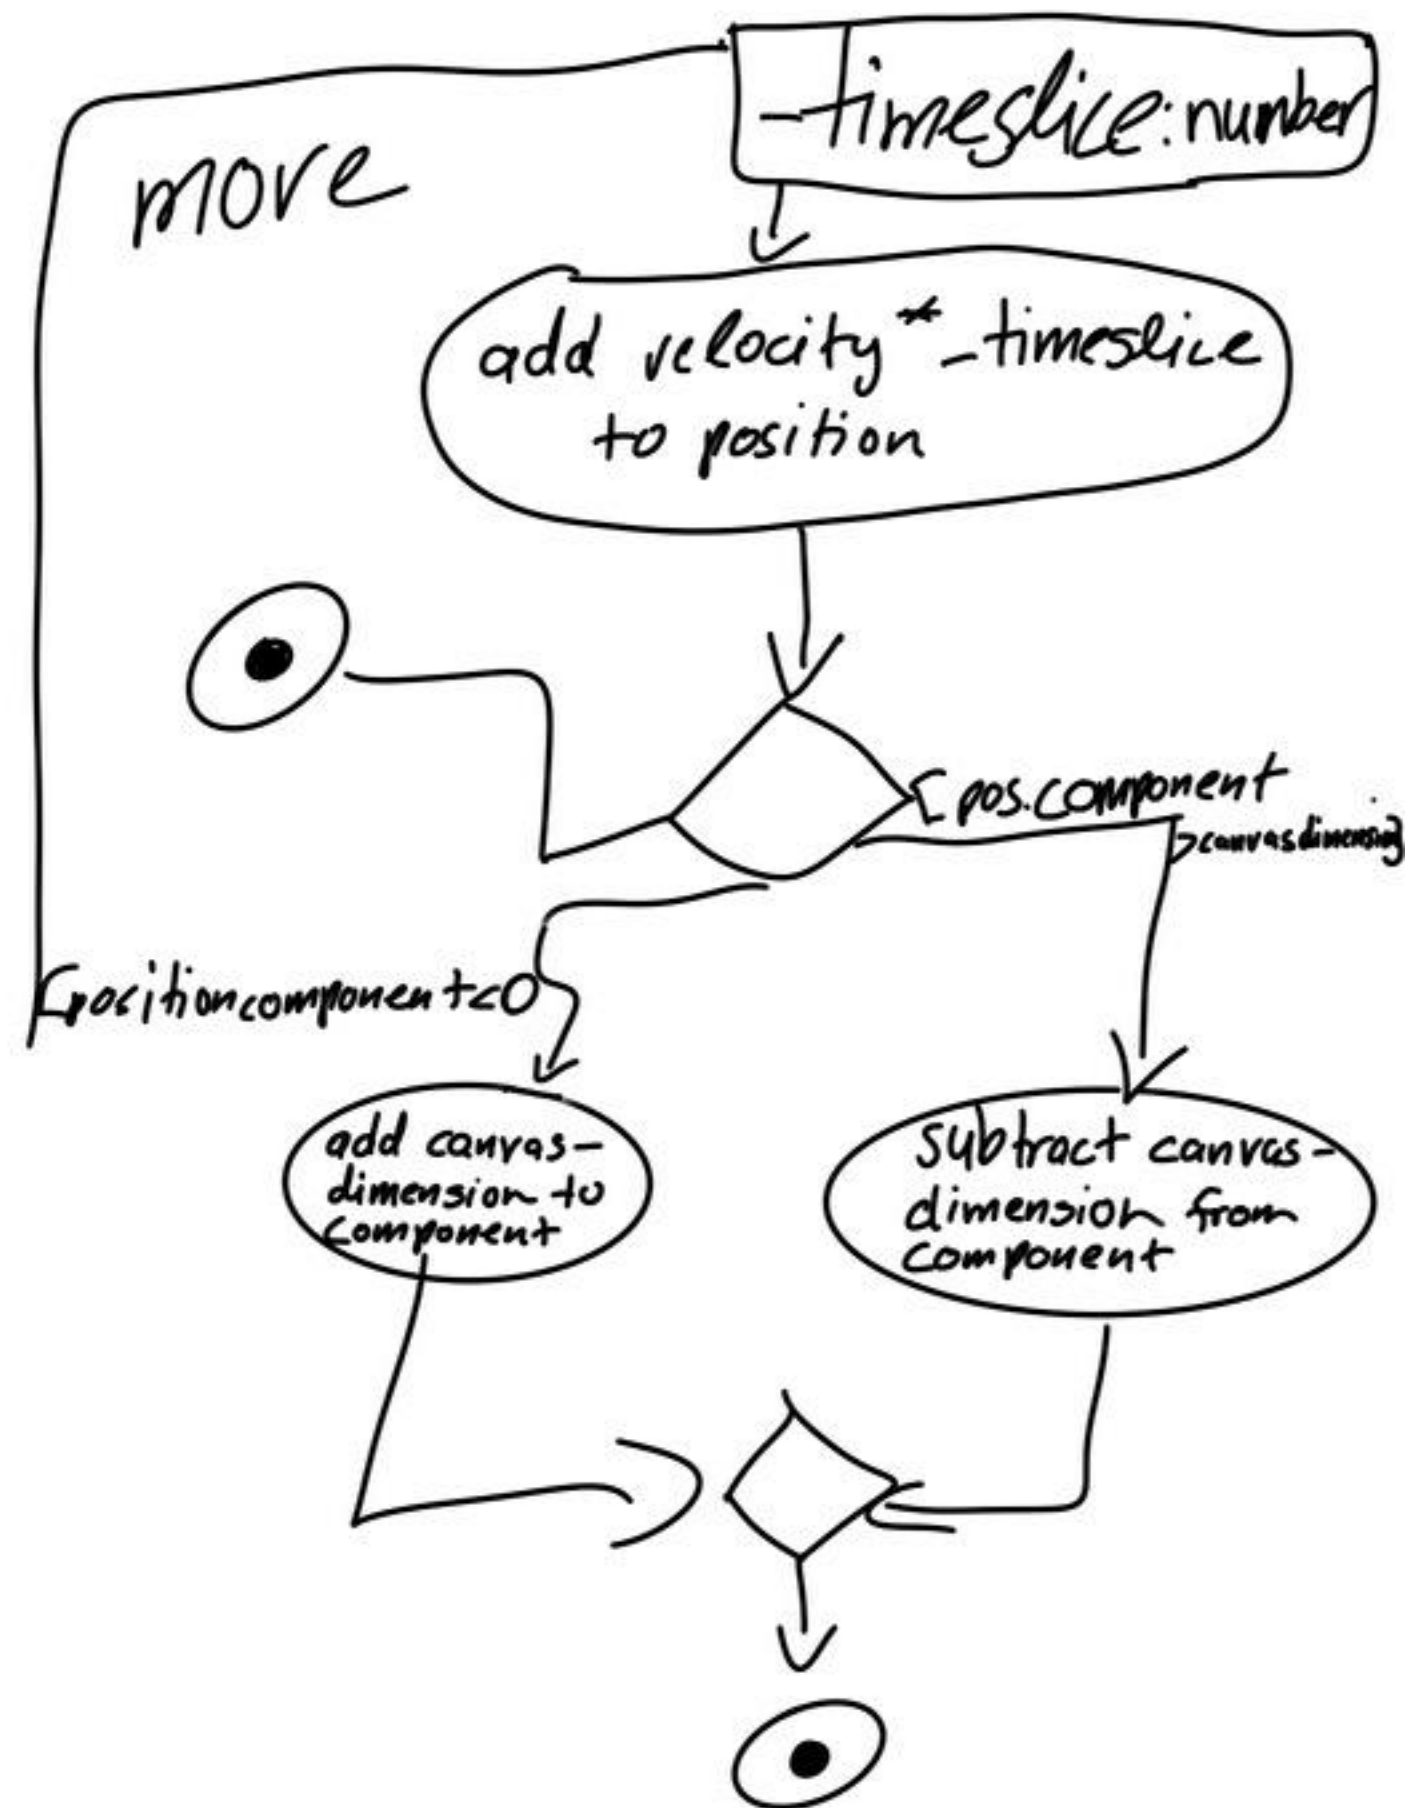 _timeslice: number
move
add velocity * _timeslice
to position
[pos.component
>canvasdimension]
[positioncomponent<0
add canvas-
dimension to
component
subtract canvas-
dimension from
component